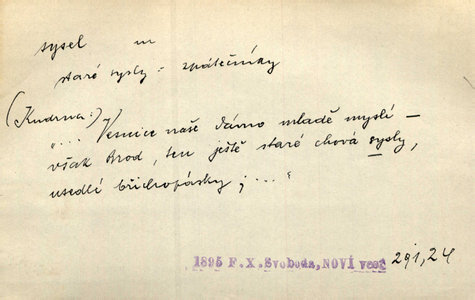 sysel m
staré sysly : zpátečníky
(Kudrna:)
"... Vesnice naše dávno mladě myslí –
však Brod, ten ještě staré chová sysly,
usedlé břichopásky ; ..."
1895 F.X.Svoboda, NOVÍ včel 291,24